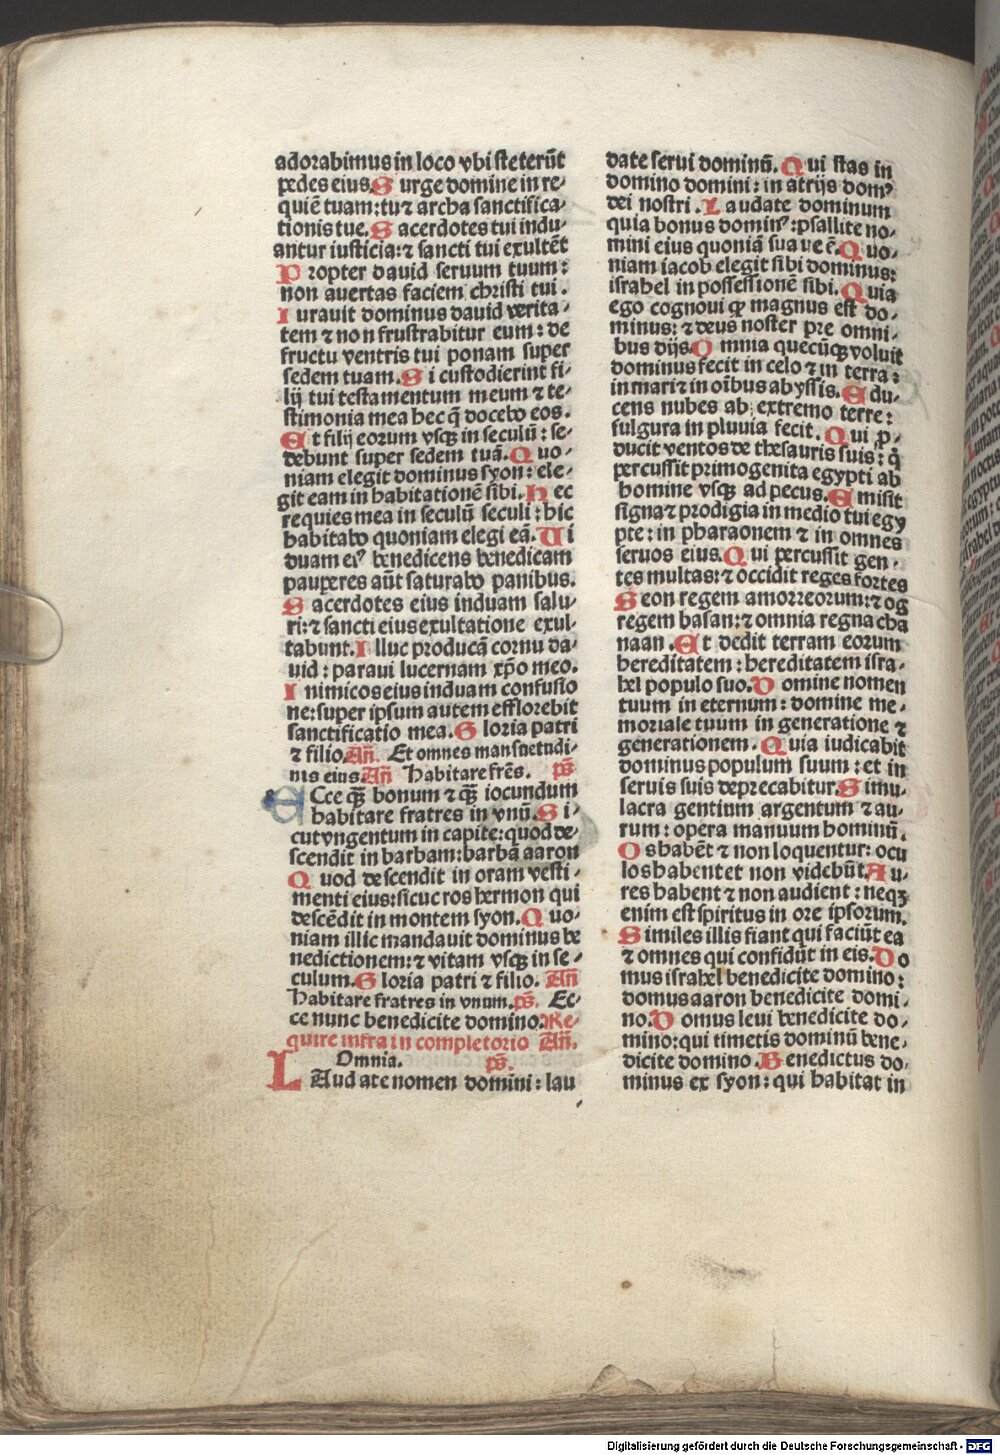 adorabimus in loco vbi steterūt
pedes eius. S urge domine in re⸗
quiē tuam: tu ⁊ archa sanctifica⸗
tionis tue. S acerdotes tui indu⸗
antur iusticia: ⁊ sancti tui exultēt
P ropter dauid seruum tuum:
non auertas faciem christi tui.
I urauit dominus dauid verita⸗
tem ⁊ non frustrabitur eum: de
fructu ventris tui ponam super
sedem tuam. S i custodierint fi⸗
lij tui testamentum meum ⁊ te⸗
stimonia mea hec q̄ docebo eos.
E t filij eorum vsqꝫ in seculū: se⸗
debunt super sedem tuā. Q uo⸗
niam elegit dominus syon: ele⸗
git eam in habitationē sibi. H ec
requies mea in seculū seculi: hic
habitabo quoniam elegi eā. U i
duam eiꝰ benedicens benedicam
pauperes aūt saturabo panibus.
S acerdotes eius induam salu⸗
ri: ⁊ sancti eius exultatione exul⸗
tabunt. I lluc producā cornu da⸗
uid: paraui lucernam xp̄o meo.
I nimicos eius induam confusio
ne: super ipsum autem efflorebit
sanctificatio mea. G loria patri
⁊ filio. An̄. Et omnes mansuetudi⸗
nis eius. An̄ Habitare frēs. ps̄
E Cce qꝫ̄ bonum ⁊ qꝫ̄ iocundum
habitare fratres in vnū. S i⸗
cut vngentum in capite: quod de⸗
scendit in barbam: barbā aaron
Q uod descendit in oram vesti⸗
menti eius: sicuc ros hermon qui
descēdit in montem syon. Q uo⸗
niam illic mandauit dominus be
nedictionem: ⁊ vitam vsqꝫ in se⸗
culum. G loria patri ⁊ filio. An̄
Habitare fratres in vnum. ps̄. Ec⸗
ce nunc benedicite domino. Re⸗
quire infra in completorio An̄.
Omnia. ps̄.
L Audate nomen domini: lau
date serui dominū. Q ui stas in
domino domini: in atrijs domꝰ
dei nostri. L audate dominum
quia bonus dominꝰ: psallite no⸗
mini eius quoniā suaue ē. Q uo⸗
niam iacob elegit sibi dominus:
israhel in possessionē sibi. Q uia
ego cognoui ꝙ magnus est do⸗
minus: ⁊ deus noster pre omni⸗
bus dijs. O mnia quecūqꝫ voluit
dominus fecit in celo ⁊ in terra:
in mari ⁊ in oībus abyssis. E du⸗
cens nubes ab extremo terre:
fulgura in pluuia fecit. Q ui ꝓ⸗
ducit ventos de thesauris suis: q̄
percussit primogenita egypti ab
homine vsqꝫ ad pecus. E misit
signa ⁊ prodigia in medio tui egy
pte: in pharaonem ⁊ in omnes
seruos eius. Q ui percussit gen⸗
tes multas: ⁊ occidit reges fortes
S eon regem amorreorum: ⁊ og
regem basan: ⁊ omnia regna cha
naan. E t dedit terram eorum
hereditatem: hereditatem isra⸗
hel populo suo. D omine nomen
tuum in eternum: domine me⸗
moriale tuum in generatione ⁊
generationem. Q uia iudicabit
dominus populum suum: et in
seruis suis deprecabitur. S imu⸗
lacra gentium argentum ⁊ au⸗
rum: opera manuum hominū.
O s habēt ⁊ non loquentur: ocu
los habent et non videbūt. A u⸗
res habent ⁊ non audient: neqꝫ
enim est spiritus in ore ipsorum.
S imiles illis fiant qui faciūt ea
⁊ omnes qui confidūt in eis. D o
mus israhel benedicite domino:
domus aaron benedicite domi⸗
no. D omus leui benedicite do⸗
mino: qui timetis dominū bene⸗
dicite domino. B enedictus do⸗
minus ex syon: qui habitat in
Digitalisierung gefördert durch die Deutsche Forschungsgemeinschaft - DFG